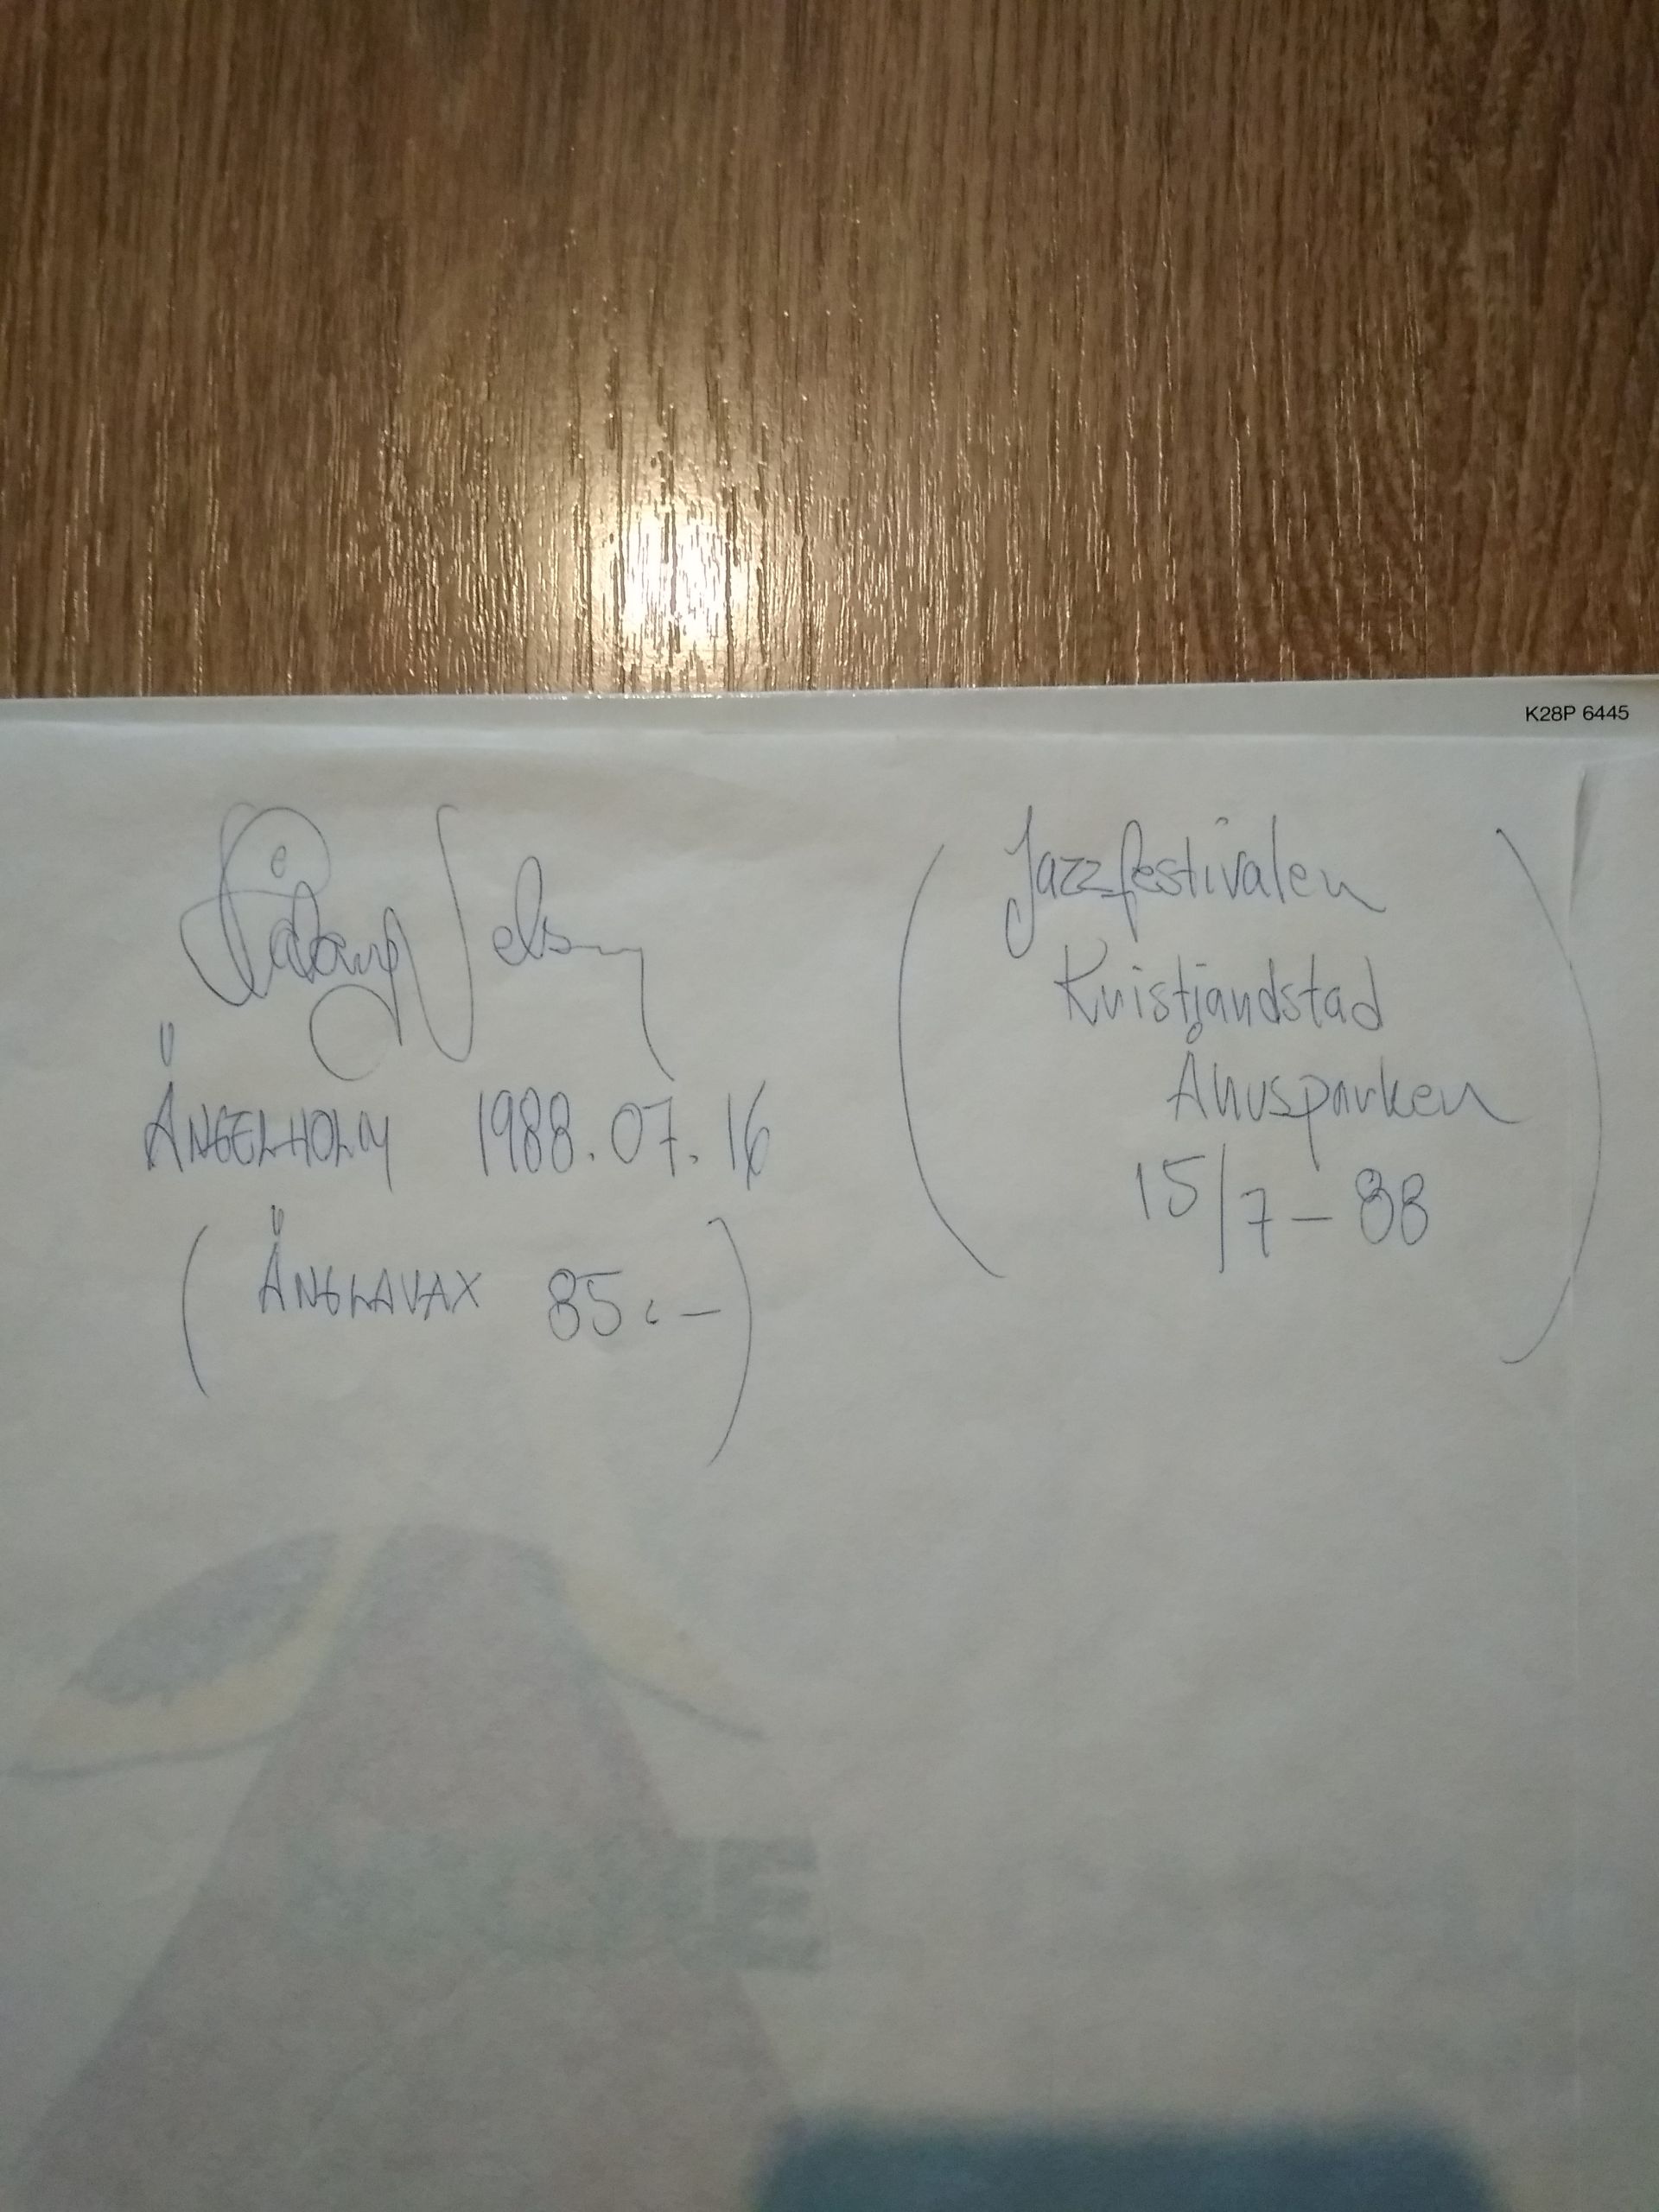 K28P 6445
ÄNGELHOLM 1988.07.16
(ÄNGLAVAX 85:-)
(Jazzfestivalen
Kristiandstad
Åhusparken
15/7-88)